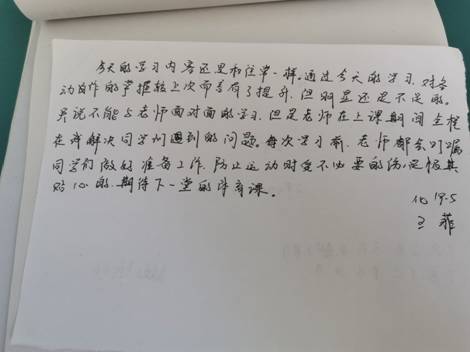 今天的学习内容还是和往常一样。通过今天的学习，对各
动作的掌握较上次而言有了提升，但明显还是不足的。
虽说不能与老师面对面的学习，但是老师在上课期间全程
在线解决同学们遇到的问题。每次学习前，老师都会叮嘱
同学们做好准备工作，防止运动时受不必要的伤，是极其
贴心的。期待下一堂的体育课。
化19.5
王菲